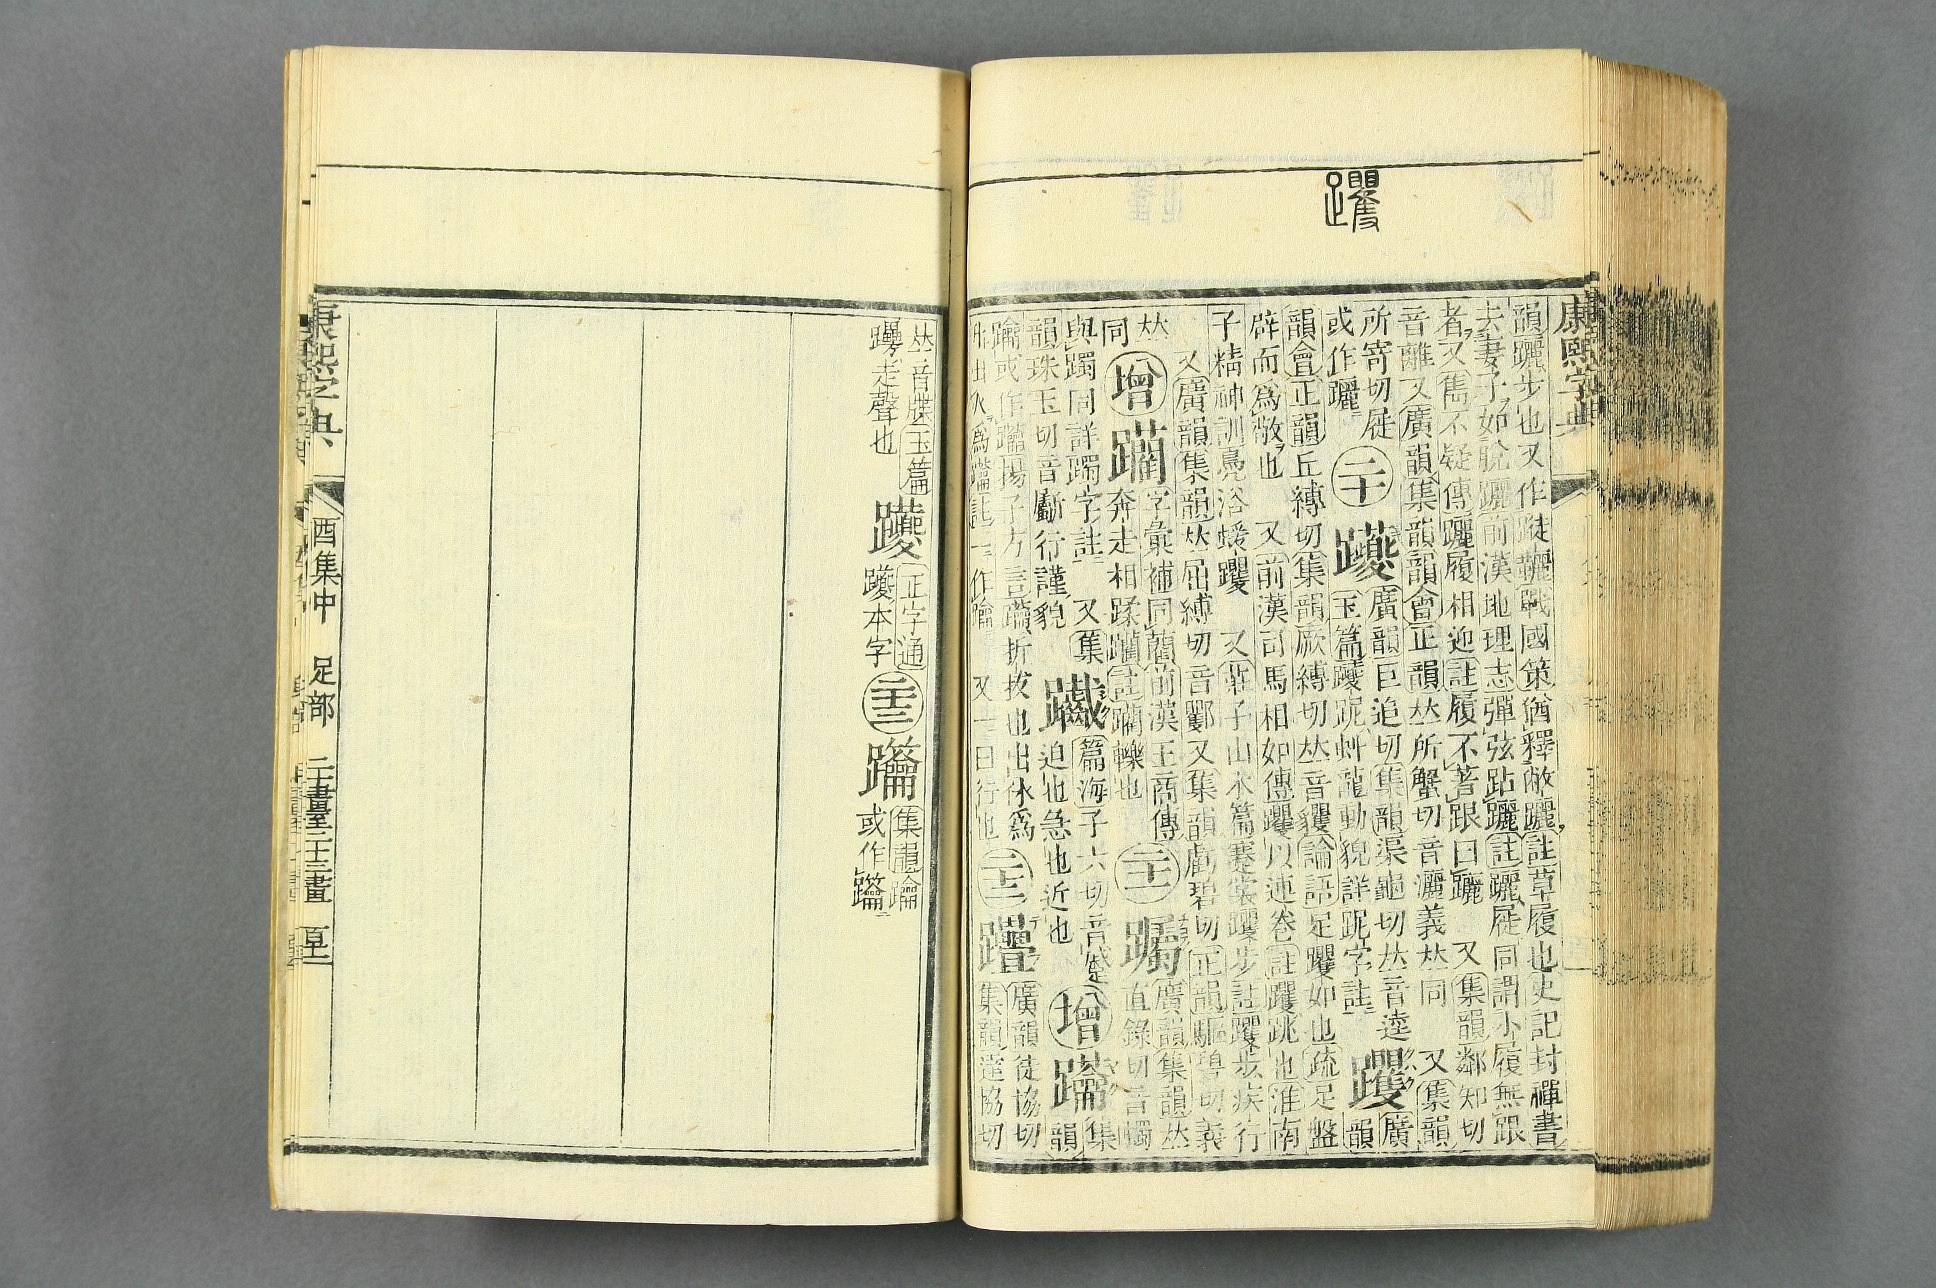 躩
康熙字典
韻躧步也又作蹝戰國策猶釋敝躧註草履也史記封禪書
去妻子如脫躧前漢地理志彈弦跕躧註躧屣同謂小履無跟
者又雋不疑傳躧履相迎註履不著跟曰躧 又集韻鄰知切
音離又廣韻集韻韻會正韻𠀤所蟹切音灑義𠀤同 又集韻
所寄切屣
或作躧
二十
躨
廣韻巨追切集韻渠龜切𠀤音逵
玉篇躨跜虯龍動貌詳跜字註
躩
廣
韻
韻會正韻丘縛切集韻厥縛切𠀤音玃論語足躩如也疏足盤
辟而爲敬也 又前漢司馬相如傳躩以連卷註躩跳也淮南
子精神訓鳧浴蝯躩 又莊子山木篇蹇裳躩步註躩步疾行
又廣韻集韻𠀤屈縛切音又集韻虧碧切正韻驅碧切義
𠀤
同
增
躪
字彙補同藺前漢王商傳
奔走相蹂躪註躪轢也
二十一
廣韻集韻𠀤
直錄切音躅
與躅同詳躅字註 又集
韻珠玉切音斸行謹貌
篇海子六切音蹙
迫也急也近也
增
集
韻
或作揚子方言拔也出㳄爲
一作 又一曰行也
二十二
廣韻徒協切
集韻達協切
𠀤音牒玉篇
走聲也
躨
正字通
躨本字
二十三
集韻
或作
康熙字典
酉集中 足部 二十畫 二十三畫